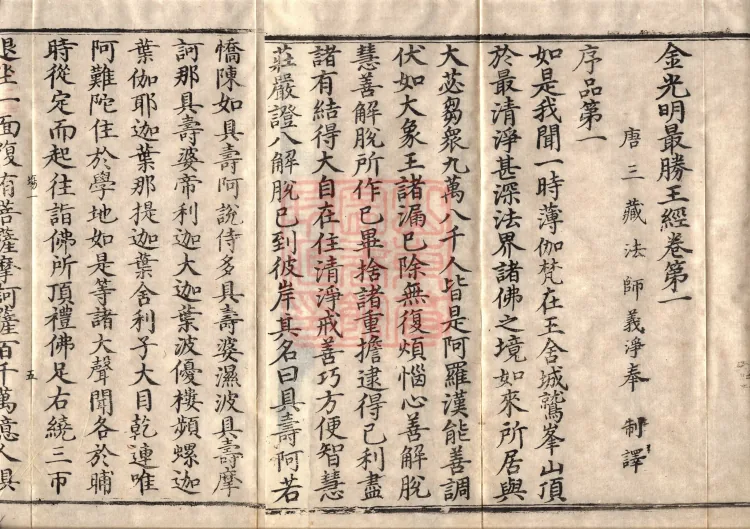 金光明最勝王經卷第一
唐三藏法師義淨奉制譯
序品第一
如是我聞一時薄伽梵在王舍城鷲峯山頂
於最清淨甚深法界諸佛之境如來所居與
大苾芻衆九萬八千人皆是阿羅漢能善調
伏如大象王諸漏已除無復煩惱心善解脫
慧善解脫所作已畢捨諸重擔逮得己利盡
諸有結得大自在住清淨戒善巧方便智慧
莊嚴證八解脫已到彼岸其名曰具壽阿若
憍陳如具壽阿說侍多具壽婆濕波具壽摩
訶那具壽婆帝利迦大迦葉波優樓頻螺迦
葉伽耶迦葉那提迦葉舍利子大目乾連唯
阿難陀住於學地如是等諸大聲聞各於晡
時從定而起往詣佛所頂禮佛足右繞三帀
退坐一面復有菩薩摩訶薩百千萬億人俱
五